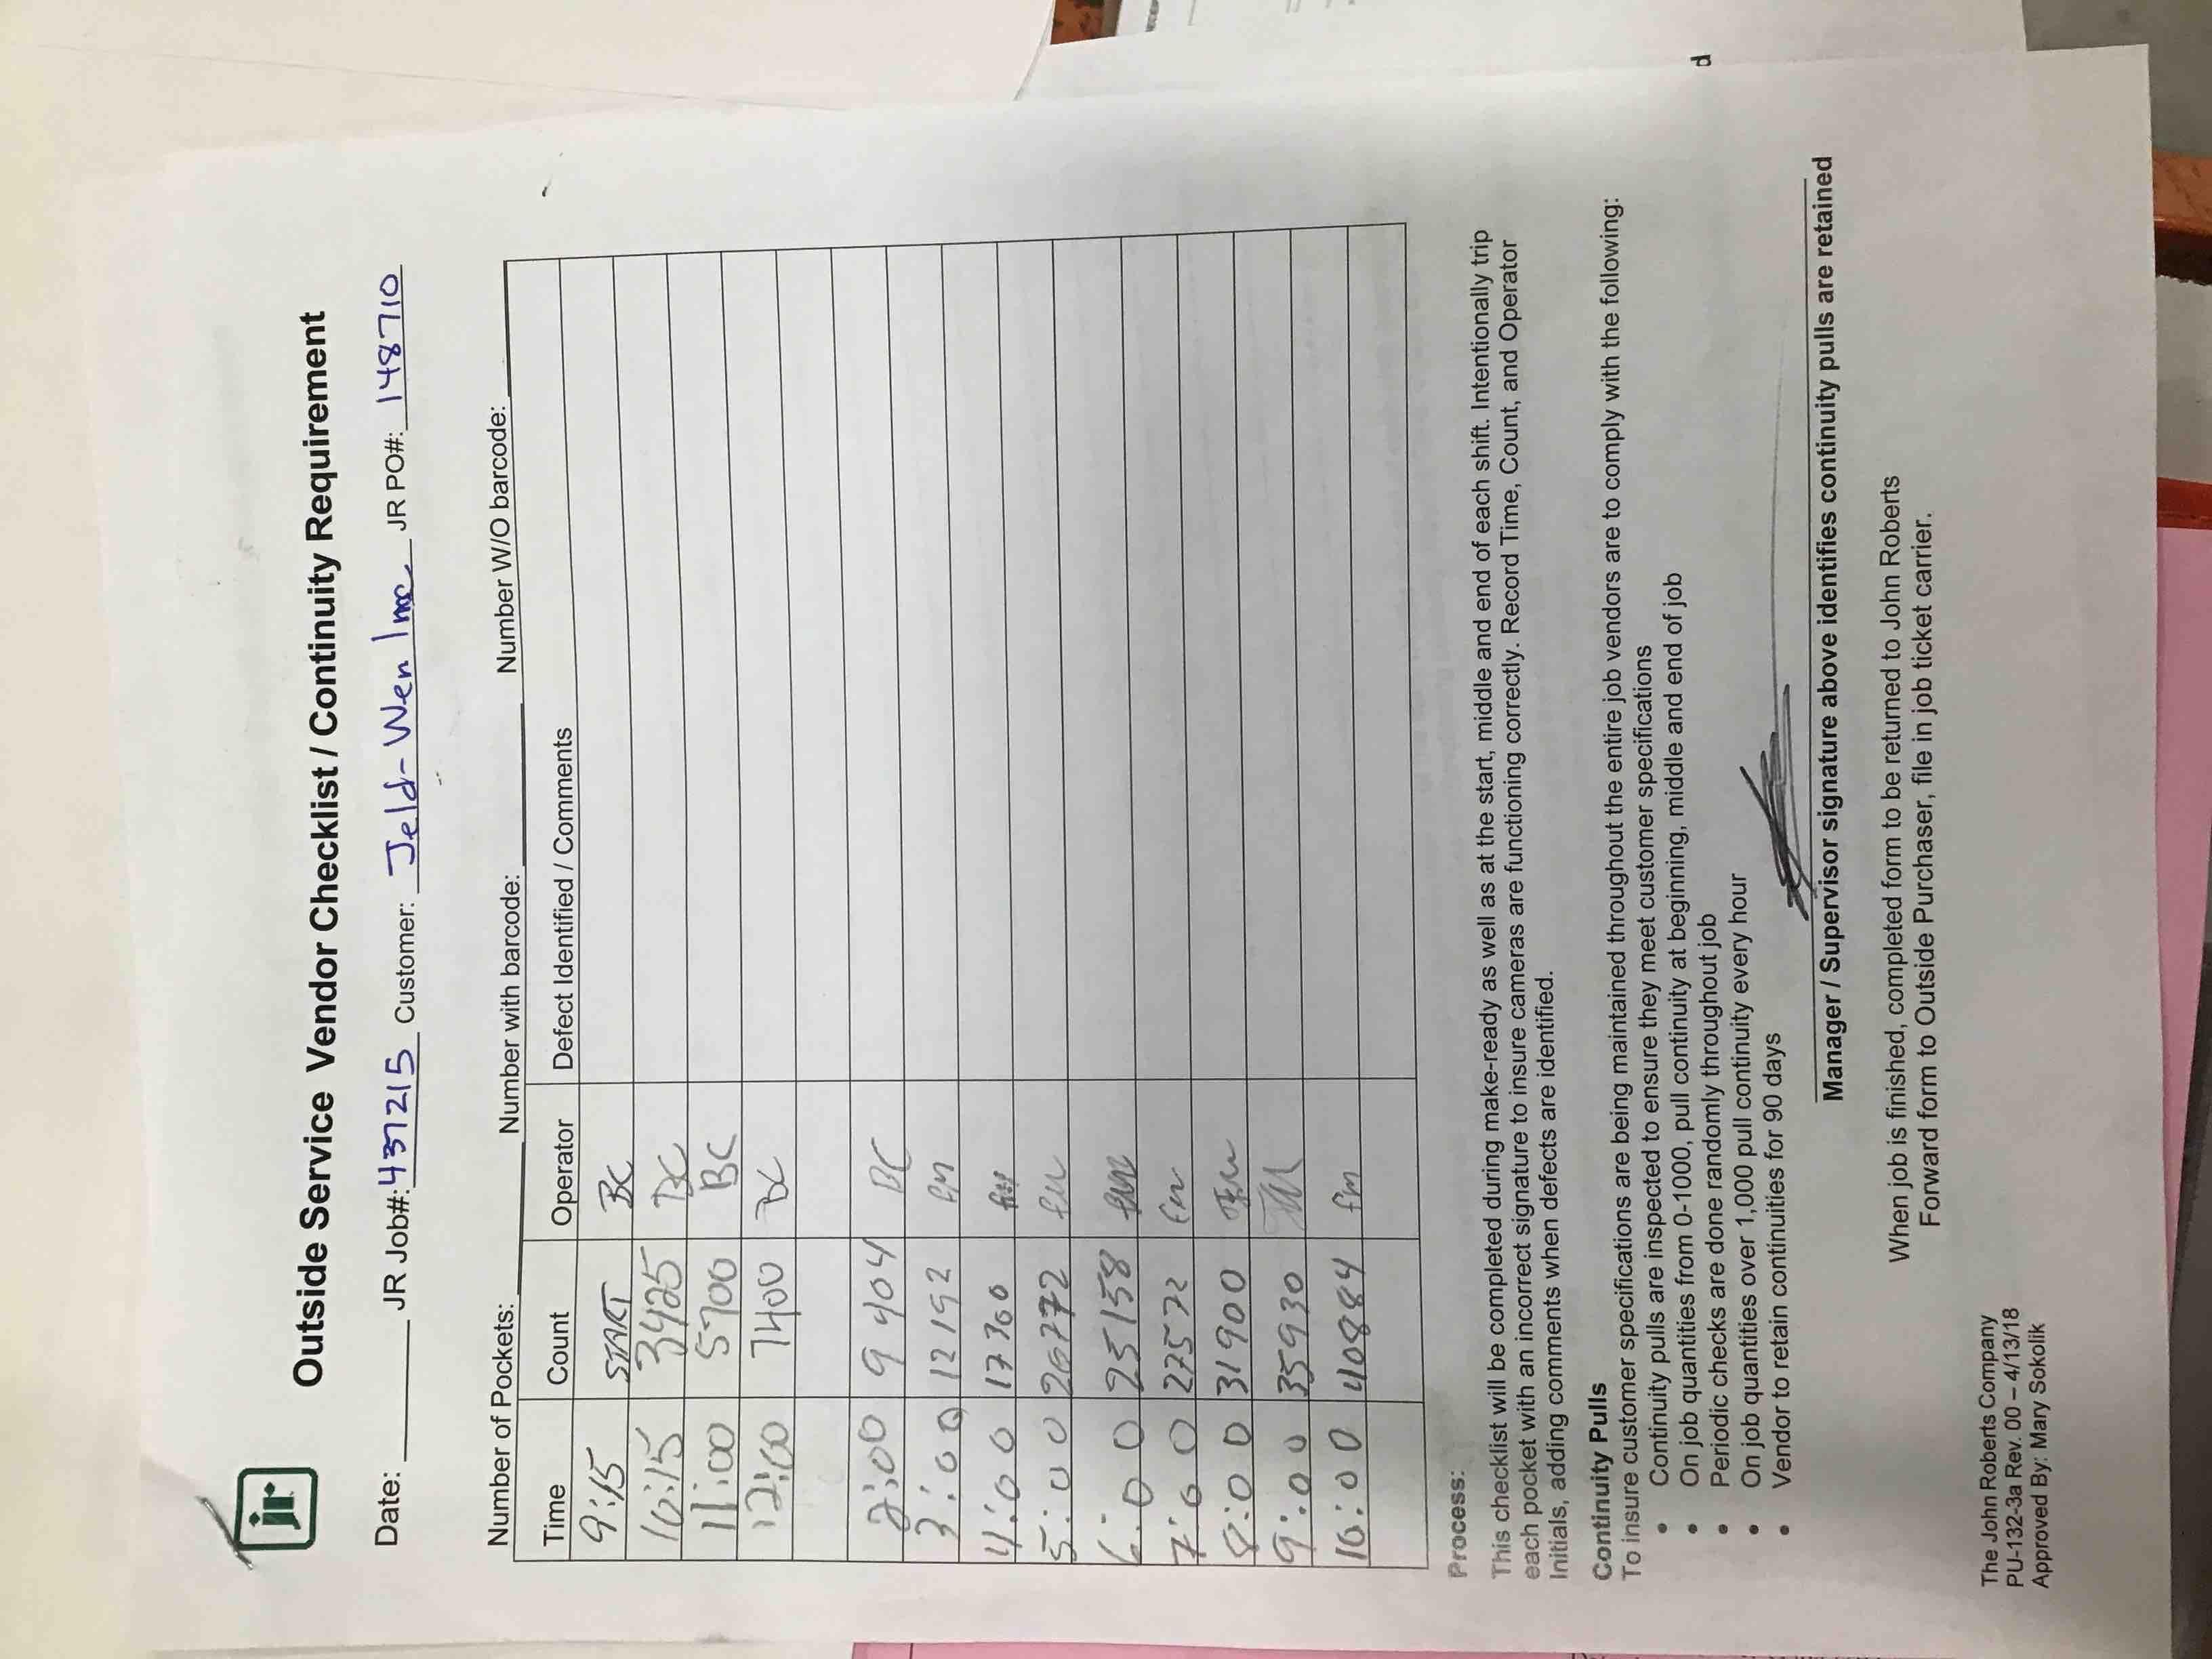 jr
Outside Service Vendor Checklist / Continuity Requirement
Date: JR Job#: 437215 Customer: Jeld-Wen Inc. JR PO#: 148710
Number of Pockets: Number with barcode: Number W/O barcode:
Time Count Operator Defect Identified / Comments
9:15 START BC
10:15 3425 BC
11:00 5700 BC
12:00 7400 BC
2:00 9404 BC
3:00 12192 fm
4:00 17360
5:00
6:00 25158
7:00 27572
8:00 31900
9:00 35930
10:00 40884 fm
Process:
This checklist will be completed during make-ready as well as at the start, middle and end of each shift. Intentionally trip
each pocket with an incorrect signature to insure cameras are functioning correctly. Record Time, Count, and Operator
Initials, adding comments when defects are identified.
Continuity Pulls
To insure customer specifications are being maintained throughout the entire job vendors are to comply with the following:
• Continuity pulls are inspected to ensure they meet customer specifications
• On job quantities from 0-1000, pull continuity at beginning, middle and end of job
• Periodic checks are done randomly throughout job
• On job quantities over 1,000 pull continuity every hour
• Vendor to retain continuities for 90 days
Manager / Supervisor signature above identifies continuity pulls are retained
When job is finished, completed form to be returned to John Roberts
Forward form to Outside Purchaser, file in job ticket carrier.
The John Roberts Company
PU-132-3a Rev. 00 – 4/13/18
Approved By: Mary Sokolik
d